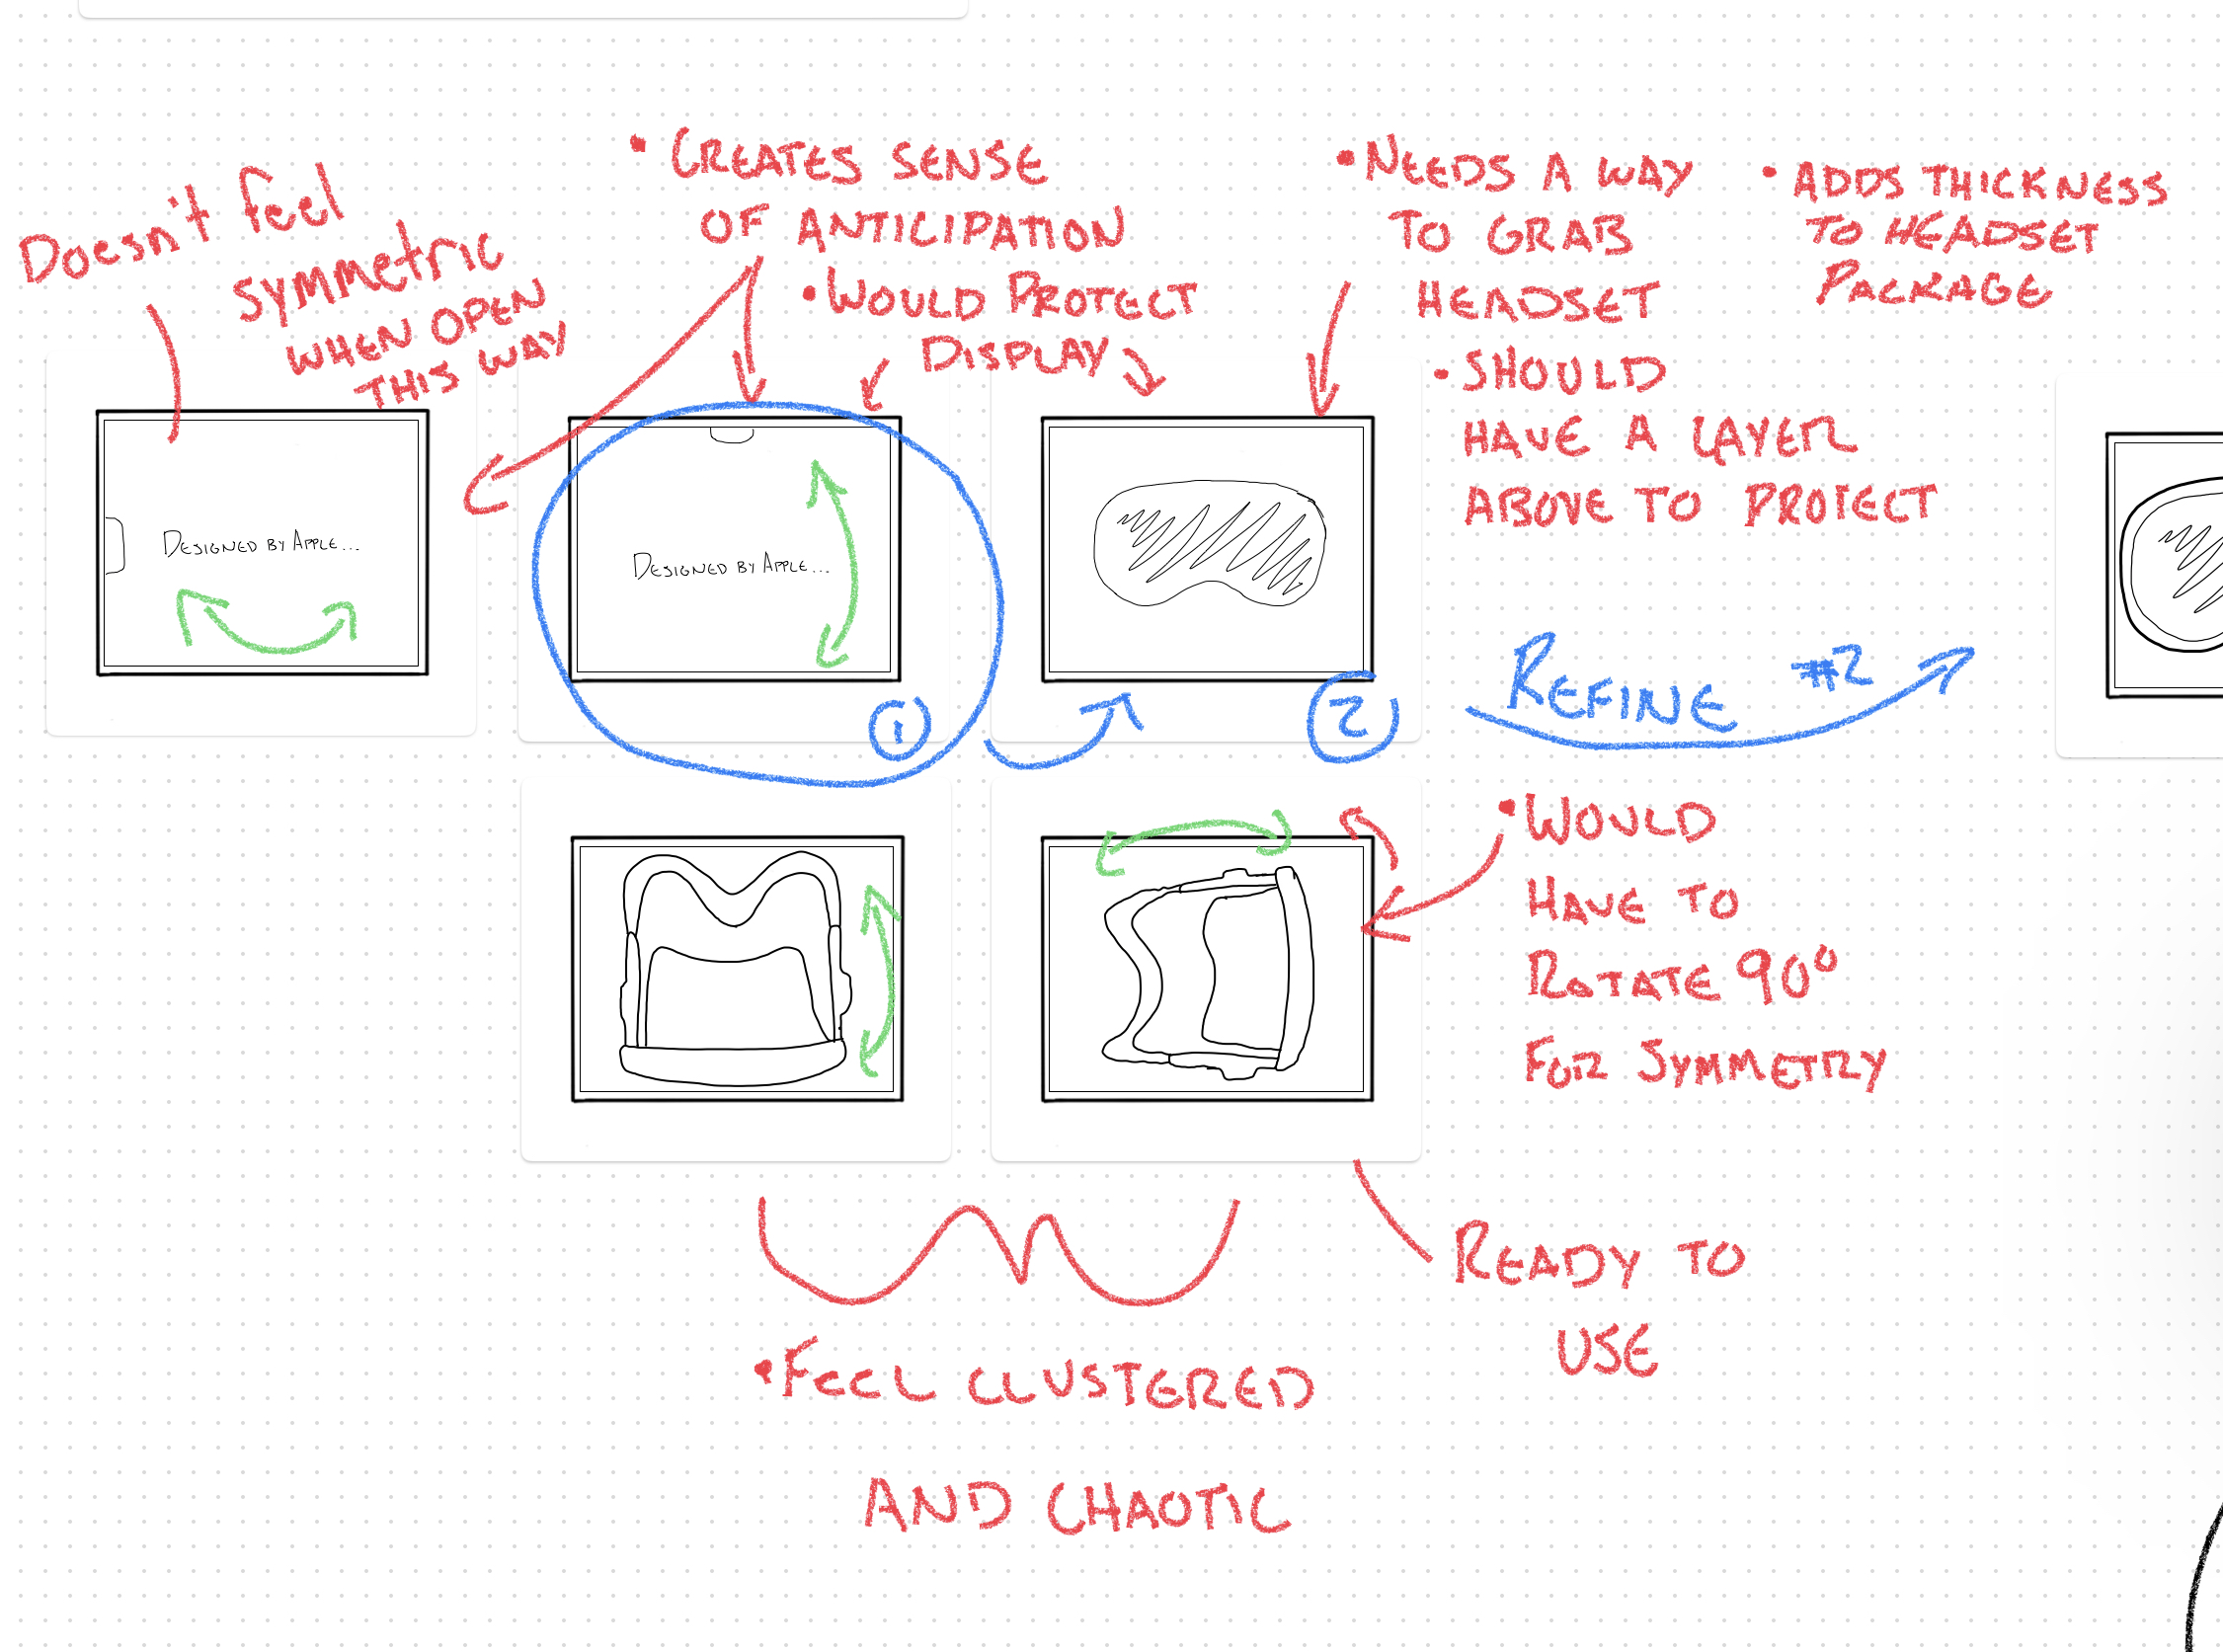 Doesn't feel
symmetric
WHEN OPEN
THIS WAY
• CREATES SENSE
OF ANTICIPATION
• WOULD PROTECT
DISPLAY
• NEEDS A WAY
TO GRAB
HEADSET
• SHOULD
HAVE A LAYER
ABOVE TO PROTECT
• ADDS THICKNESS
TO HEADSET
PACKAGE
DESIGNED BY APPLE...
DESIGNED BY APPLE...
1
2
REFINE #2
• WOULD
HAVE TO
ROTATE 90°
FOR SYMMETRY
READY TO
USE
• FEEL CLUSTERED
AND CHAOTIC